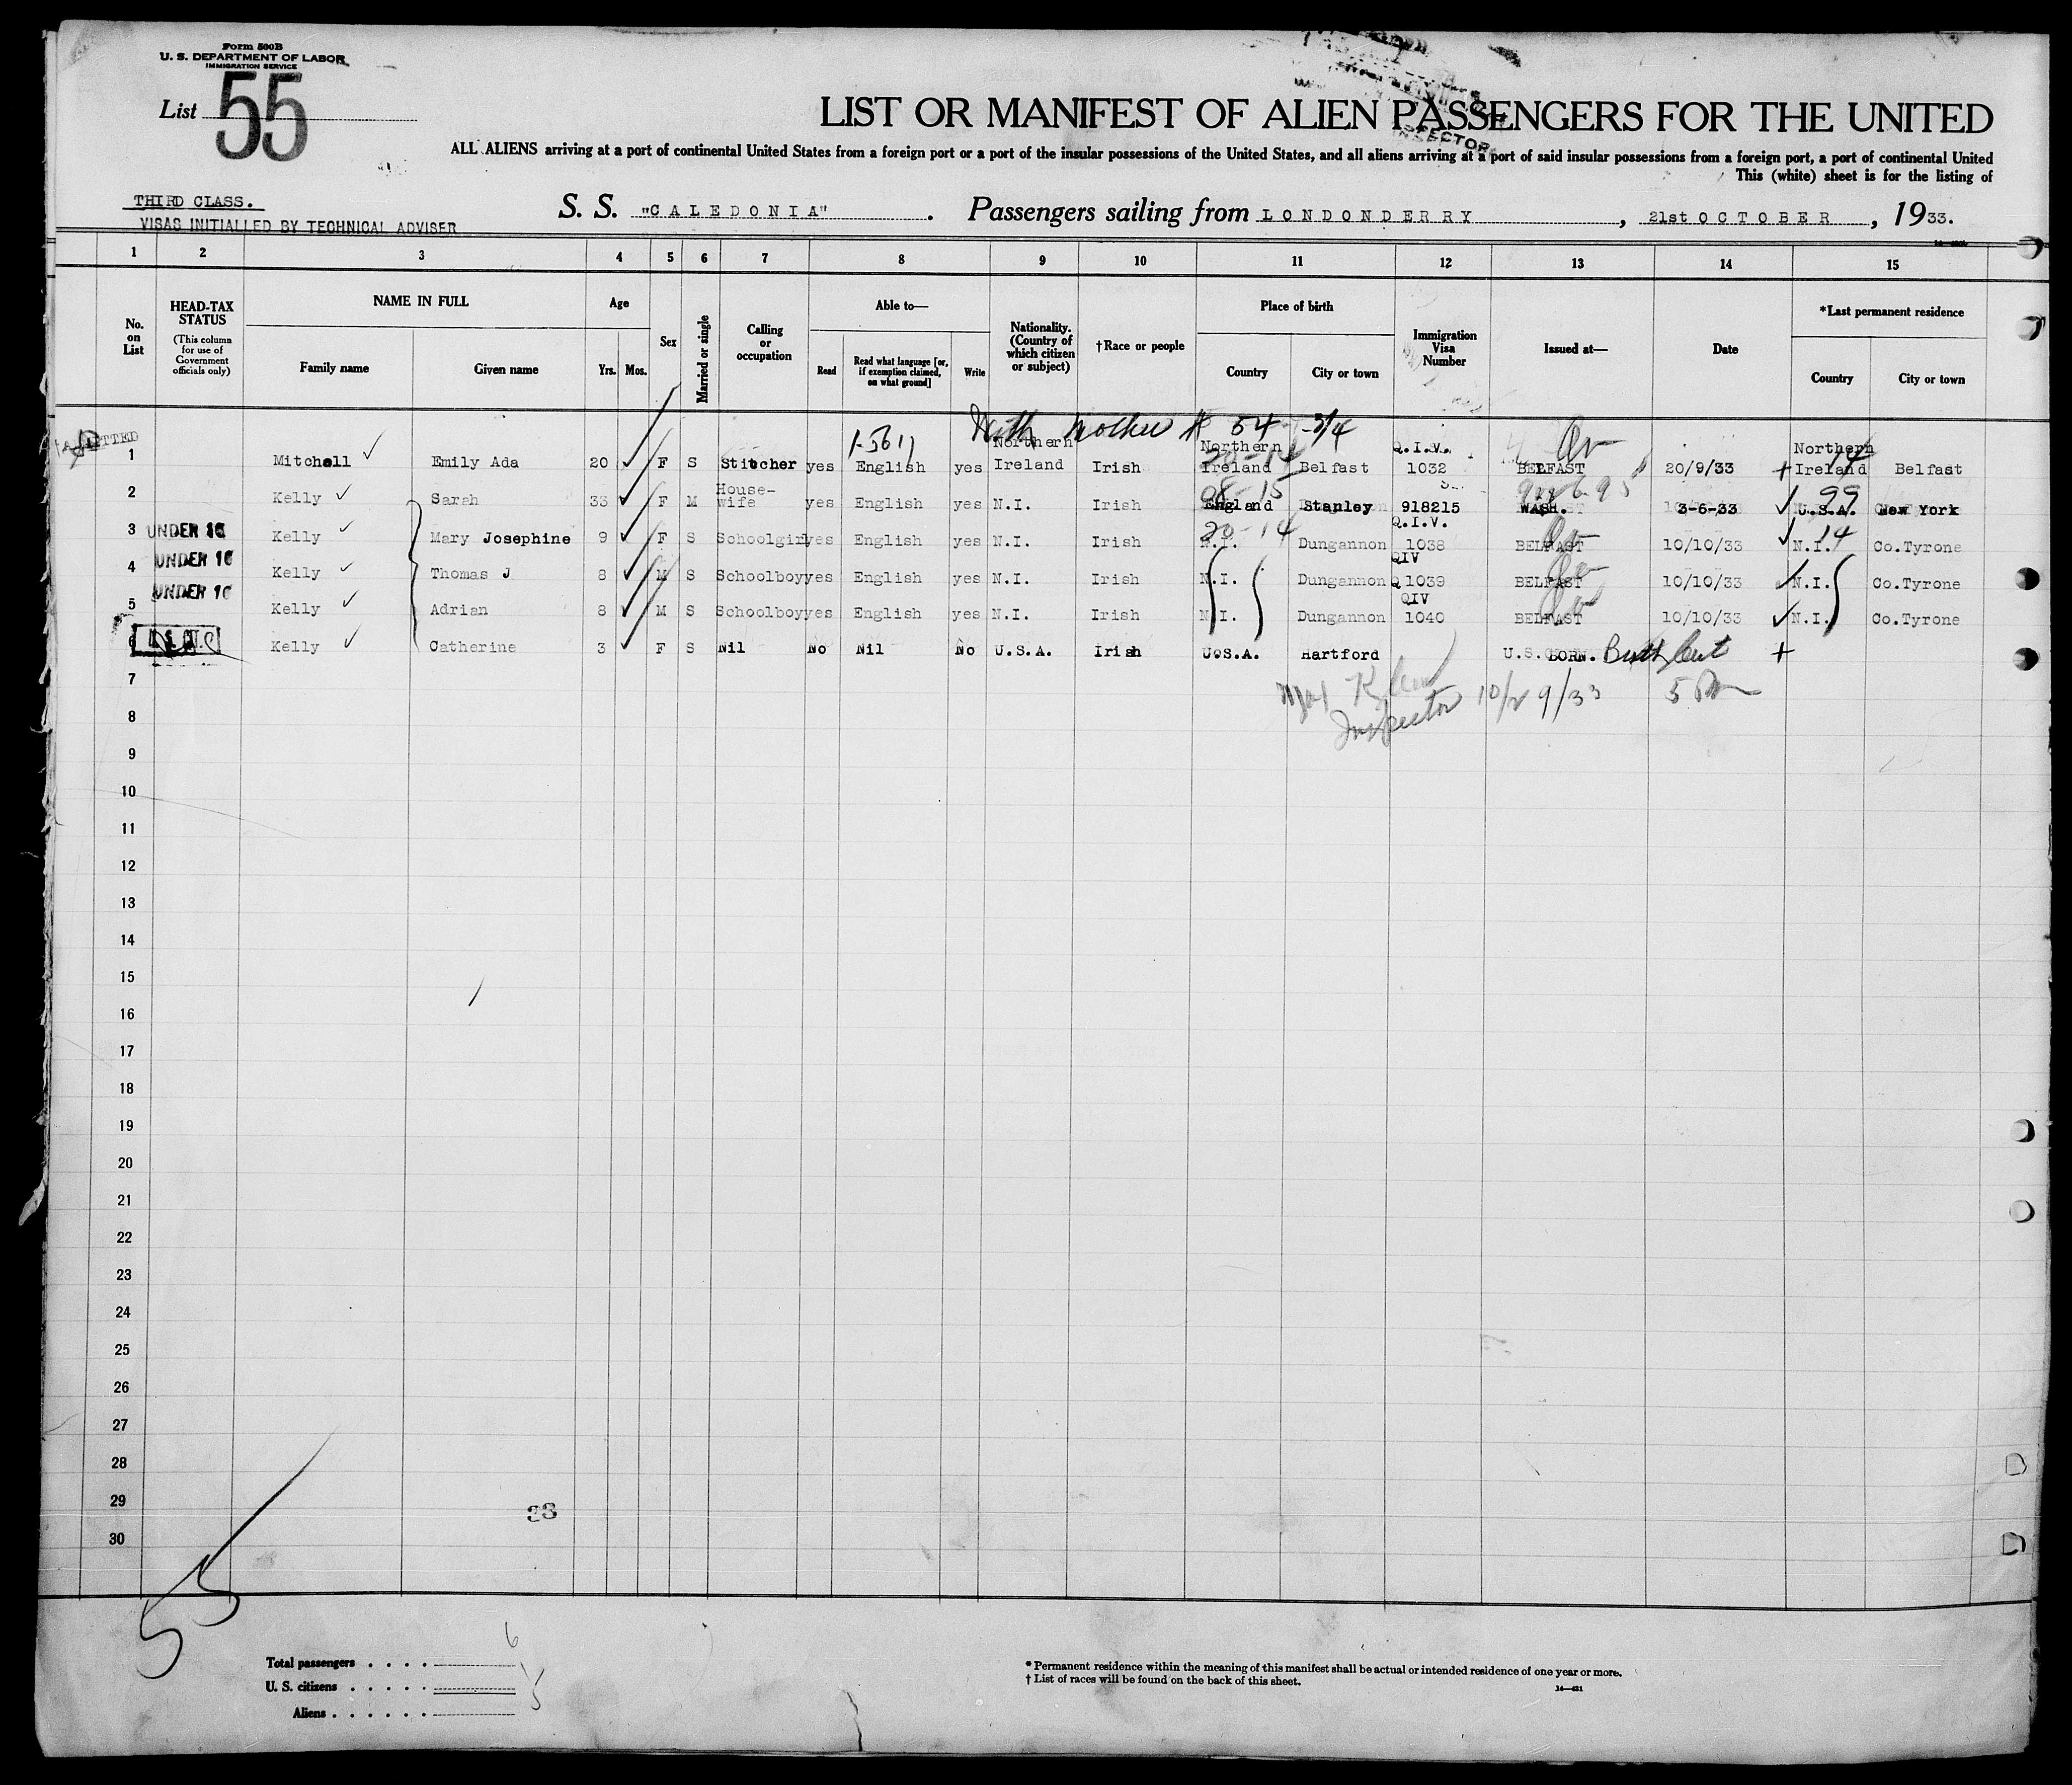 Form 500B
U. S. DEPARTMENT OF LABOR
IMMIGRATION SERVICE
List 55
LIST OR MANIFEST OF ALIEN PASSENGERS FOR THE UNITED
INSPECTOR
ALL ALIENS arriving at a port of continental United States from a foreign port or a port of the insular possessions of the United States, and all aliens arriving at a port of said insular possessions from a foreign port, a port of continental United
This (white) sheet is for the listing of
THIRD CLASS.
VISAS INITIALLED BY TECHNICAL ADVISER
S. S. "CALEDONIA". Passengers sailing from LONDONDERRY, 21st OCTOBER, 1933.
1 2 3 4 5 6 7 8 9 10 11 12 13 14 15
No. on List
HEAD-TAX STATUS
(This column for use of Government officials only)
NAME IN FULL
Family name Given name
Age
Yrs. Mos.
Sex
Married or single
Calling or occupation
Able to—
Read
Read what language [or, if exemption claimed, on what ground]
Write
Nationality. (Country of which citizen or subject)
†Race or people
Place of birth
Country City or town
Immigration Visa Number
Issued at—
Date
*Last permanent residence
Country City or town
With Mother # 54 - 3/4
ADMITTED
1 Mitchell Emily Ada 20 F S Stitcher yes English yes Northern Ireland Irish Northern Ireland Belfast Q.I.V. 1032 BELFAST 20/9/33 Northern Ireland Belfast
20-14 14
2 Kelly Sarah 33 F M House-wife yes English yes N.I. Irish England Stanley 918215 WASH. 3-6-33 U.S.A. New York
08-15 99
3 UNDER 16 Kelly Mary Josephine 9 F S Schoolgirl yes English yes N.I. Irish N.I. Dungannon Q.I.V. 1038 BELFAST 10/10/33 N.I. Co.Tyrone
20-14 14
4 UNDER 16 Kelly Thomas J 8 M S Schoolboy yes English yes N.I. Irish N.I. Dungannon QIV 1039 BELFAST 10/10/33 N.I. Co.Tyrone
5 UNDER 16 Kelly Adrian 8 M S Schoolboy yes English yes N.I. Irish N.I. Dungannon QIV 1040 BELFAST 10/10/33 N.I. Co.Tyrone
6 Kelly Catherine 3 F S Nil No Nil No U.S.A. Irish U.S.A. Hartford U.S. BORN. Birth Cert
7
Inspector
8
9
10
11
12
13
14
15
16
17
18
19
20
21
22
23
24
25
26
27
28
29
38
30
55
6
Total passengers
U. S. citizens
5
Aliens
* Permanent residence within the meaning of this manifest shall be actual or intended residence of one year or more.
† List of races will be found on the back of this sheet.
14—421